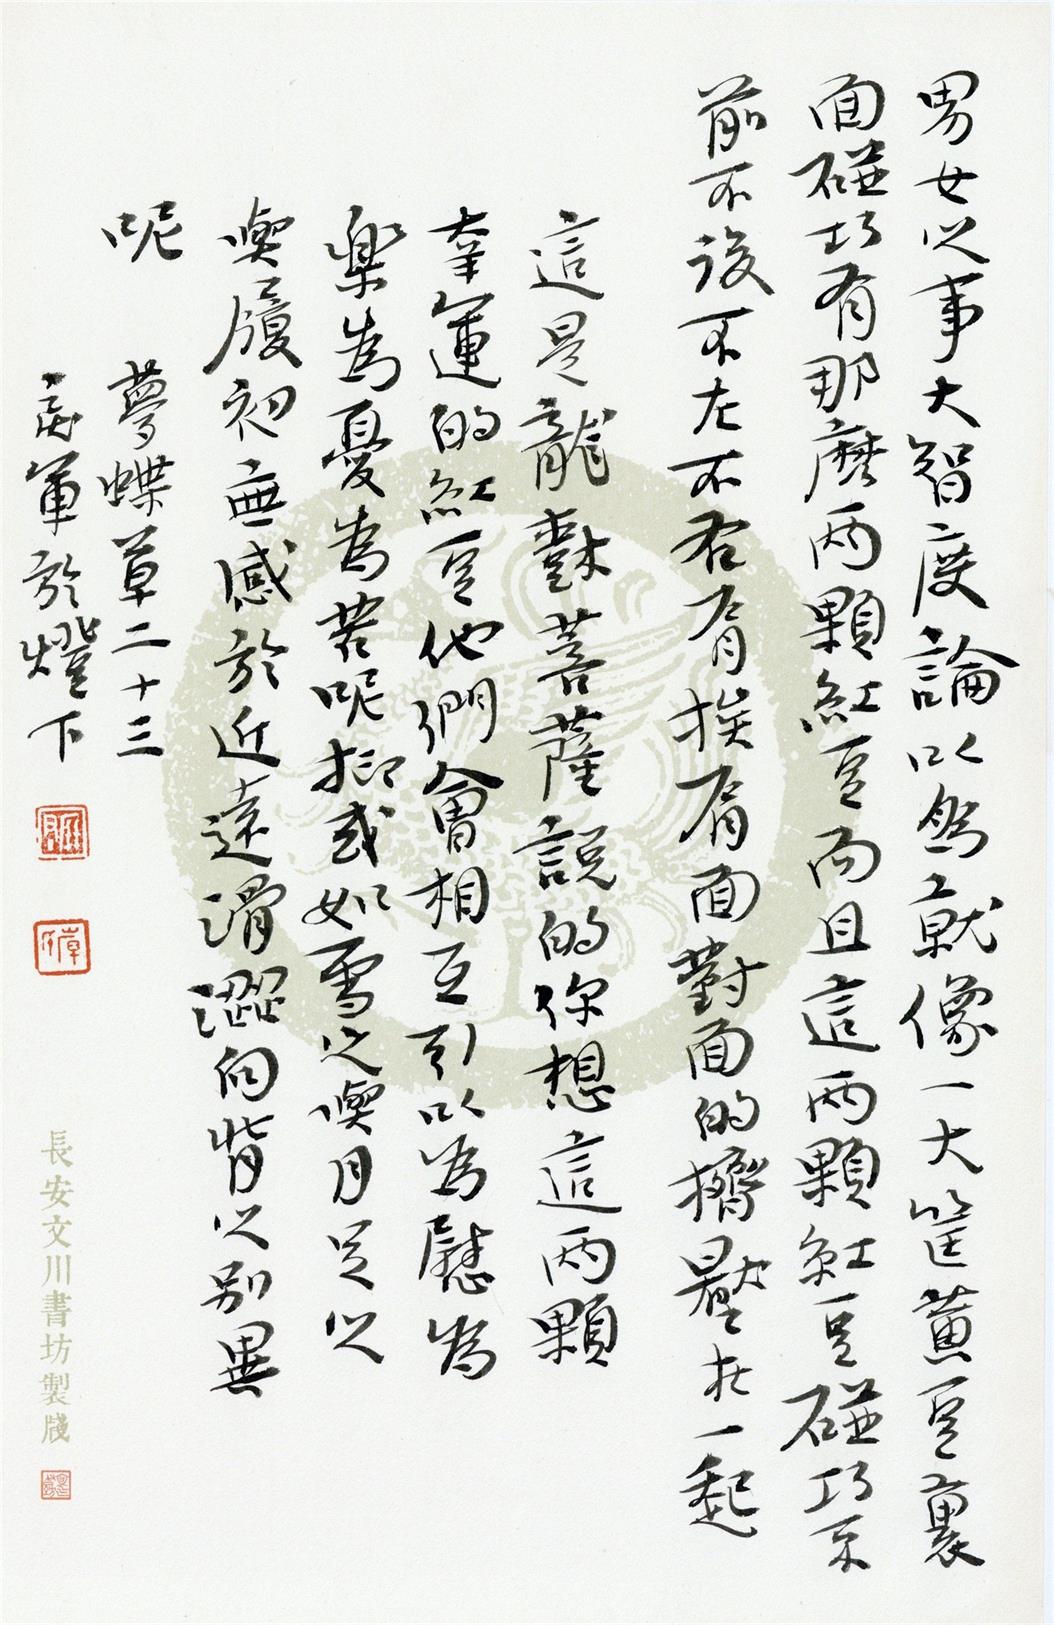 男女之事大智度論以為就像一大筐黃豆裏
面碰巧有那麼兩顆紅豆而且這兩顆紅豆碰巧不
前不後不左不右肩挨肩面對面的擠壓在一起
這是龍樹菩薩說的你想這兩顆
幸運的紅豆他們會相互引以為慰為
樂為憂為苦呢抑或如雪之喚月足之
喚履初無感於近遠滑澀向背之別異
呢 夢蝶草二十三
軍於燈下
長安文川書坊製牋